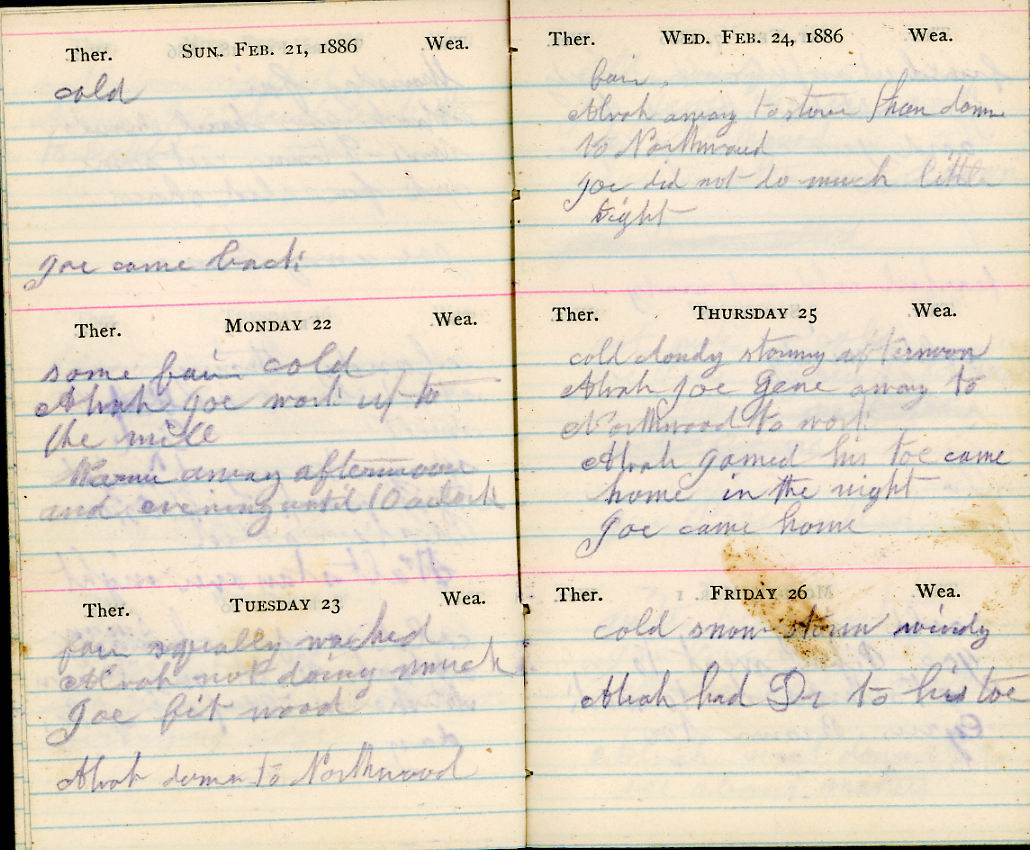 Ther. SUN. FEB. 21, 1886 Wea.
cold
Joe came back
Ther. MONDAY 22 Wea.
some fair cold
Alvah Joe work up to
the mill
away afternoon
and evening until 10 oclock
Ther. TUESDAY 23 Wea.
fair squally washed
Alvah not doing much
Joe fit wood
Alvah down to Northwood
Ther. WED. FEB. 24, 1886 Wea.
fair
Alvah away to store then down
to Northwood
Joe did not do much little
Ther. THURSDAY 25 Wea.
cold cloudy stormy afternoon
Alvah Joe Gene away to
Northwood to work
Alvah his toe came
home in the night
Joe came home
Ther. FRIDAY 26 Wea.
cold snow storm windy
Alvah had Dr to his toe